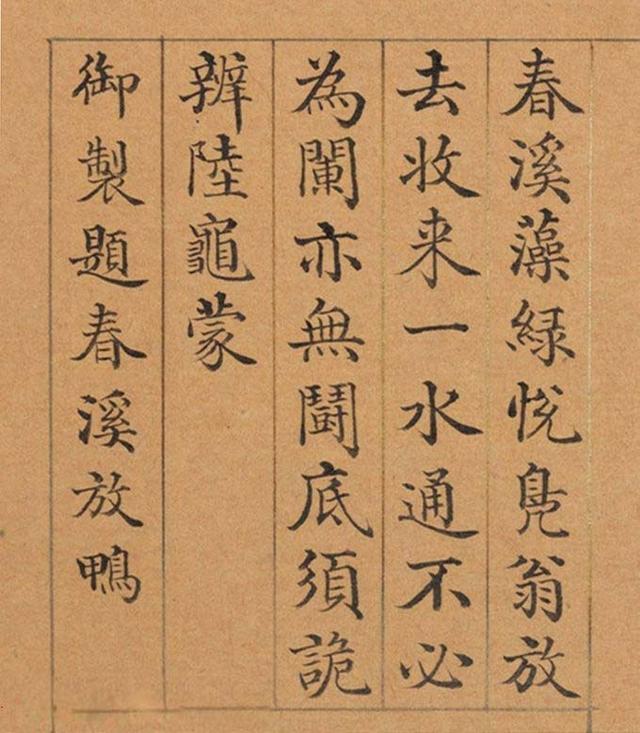 春溪藻緑悅鳬翁放
去收来一水通不必
為闌亦無鬪底須詭
辨陸龜蒙
御製題春溪放鴨